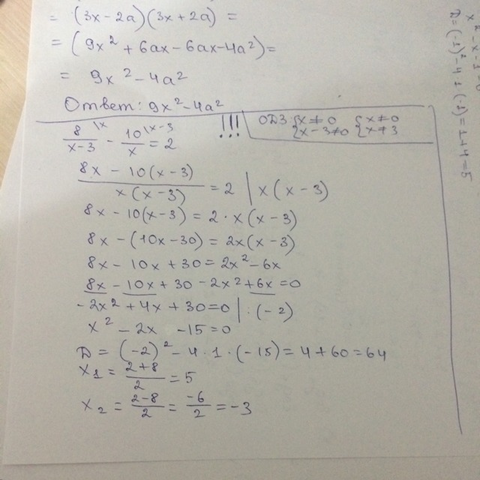 = (3x - 2a)(3x + 2a) =
= (9x² + 6ax - 6ax - 4a²) =
= 9x² - 4a²
Ответ: 9x² - 4a²
8 |x / x-3 - 10 |x-3 / x = 2 !!! ОДЗ: {x ≠ 0 {x ≠ 0
{x - 3 ≠ 0 {x ≠ 3
8x - 10(x - 3) / x(x - 3) = 2 | x(x - 3)
8x - 10(x - 3) = 2 · x(x - 3)
8x - (10x - 30) = 2x(x - 3)
8x - 10x + 30 = 2x² - 6x
8x - 10x + 30 - 2x² + 6x = 0
- 2x² + 4x + 30 = 0 | : (-2)
x² - 2x - 15 = 0
D = (-2)² - 4 · 1 · (-15) = 4 + 60 = 64
x₁ = 2+8 / 2 = 5
x₂ = 2-8 / 2 = -6 / 2 = -3
x² - x - 1 = 0
D = (-1)² - 4 · 1 · (-1) = 1 + 4 = 5